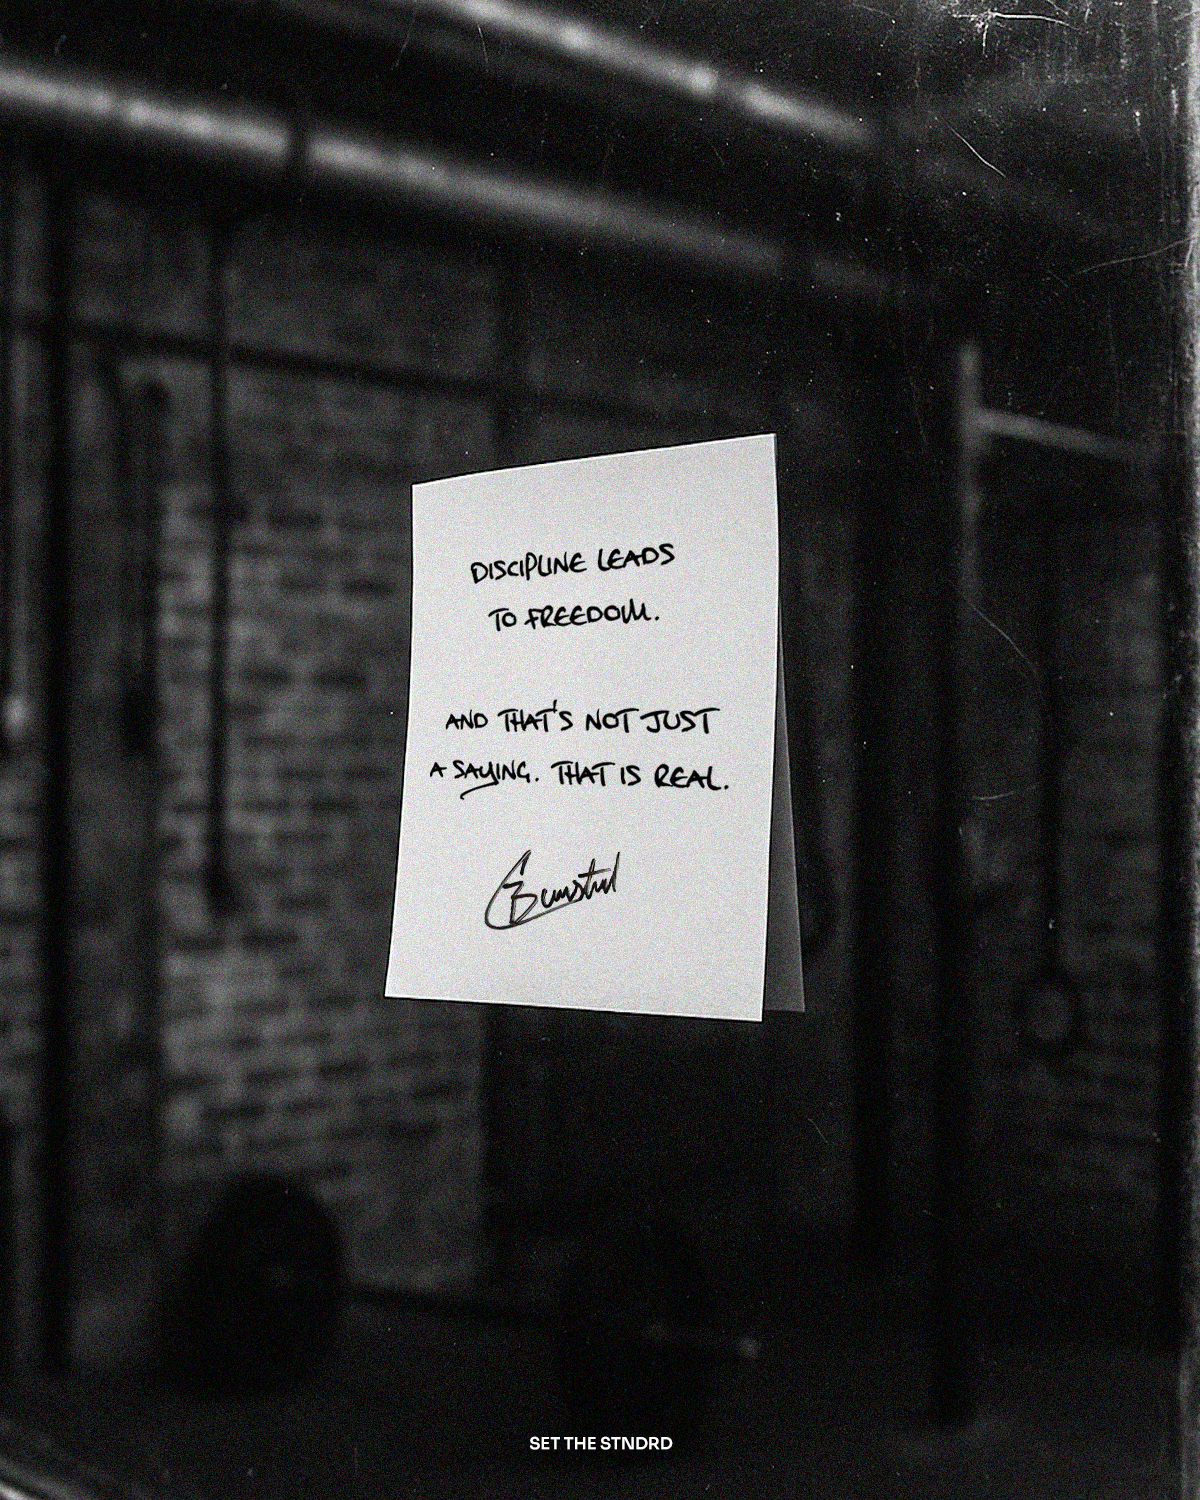 DISCIPLINE LEADS
TO FREEDOM.
AND THAT'S NOT JUST
A SAYING. THAT IS REAL.
SET THE STNDRD